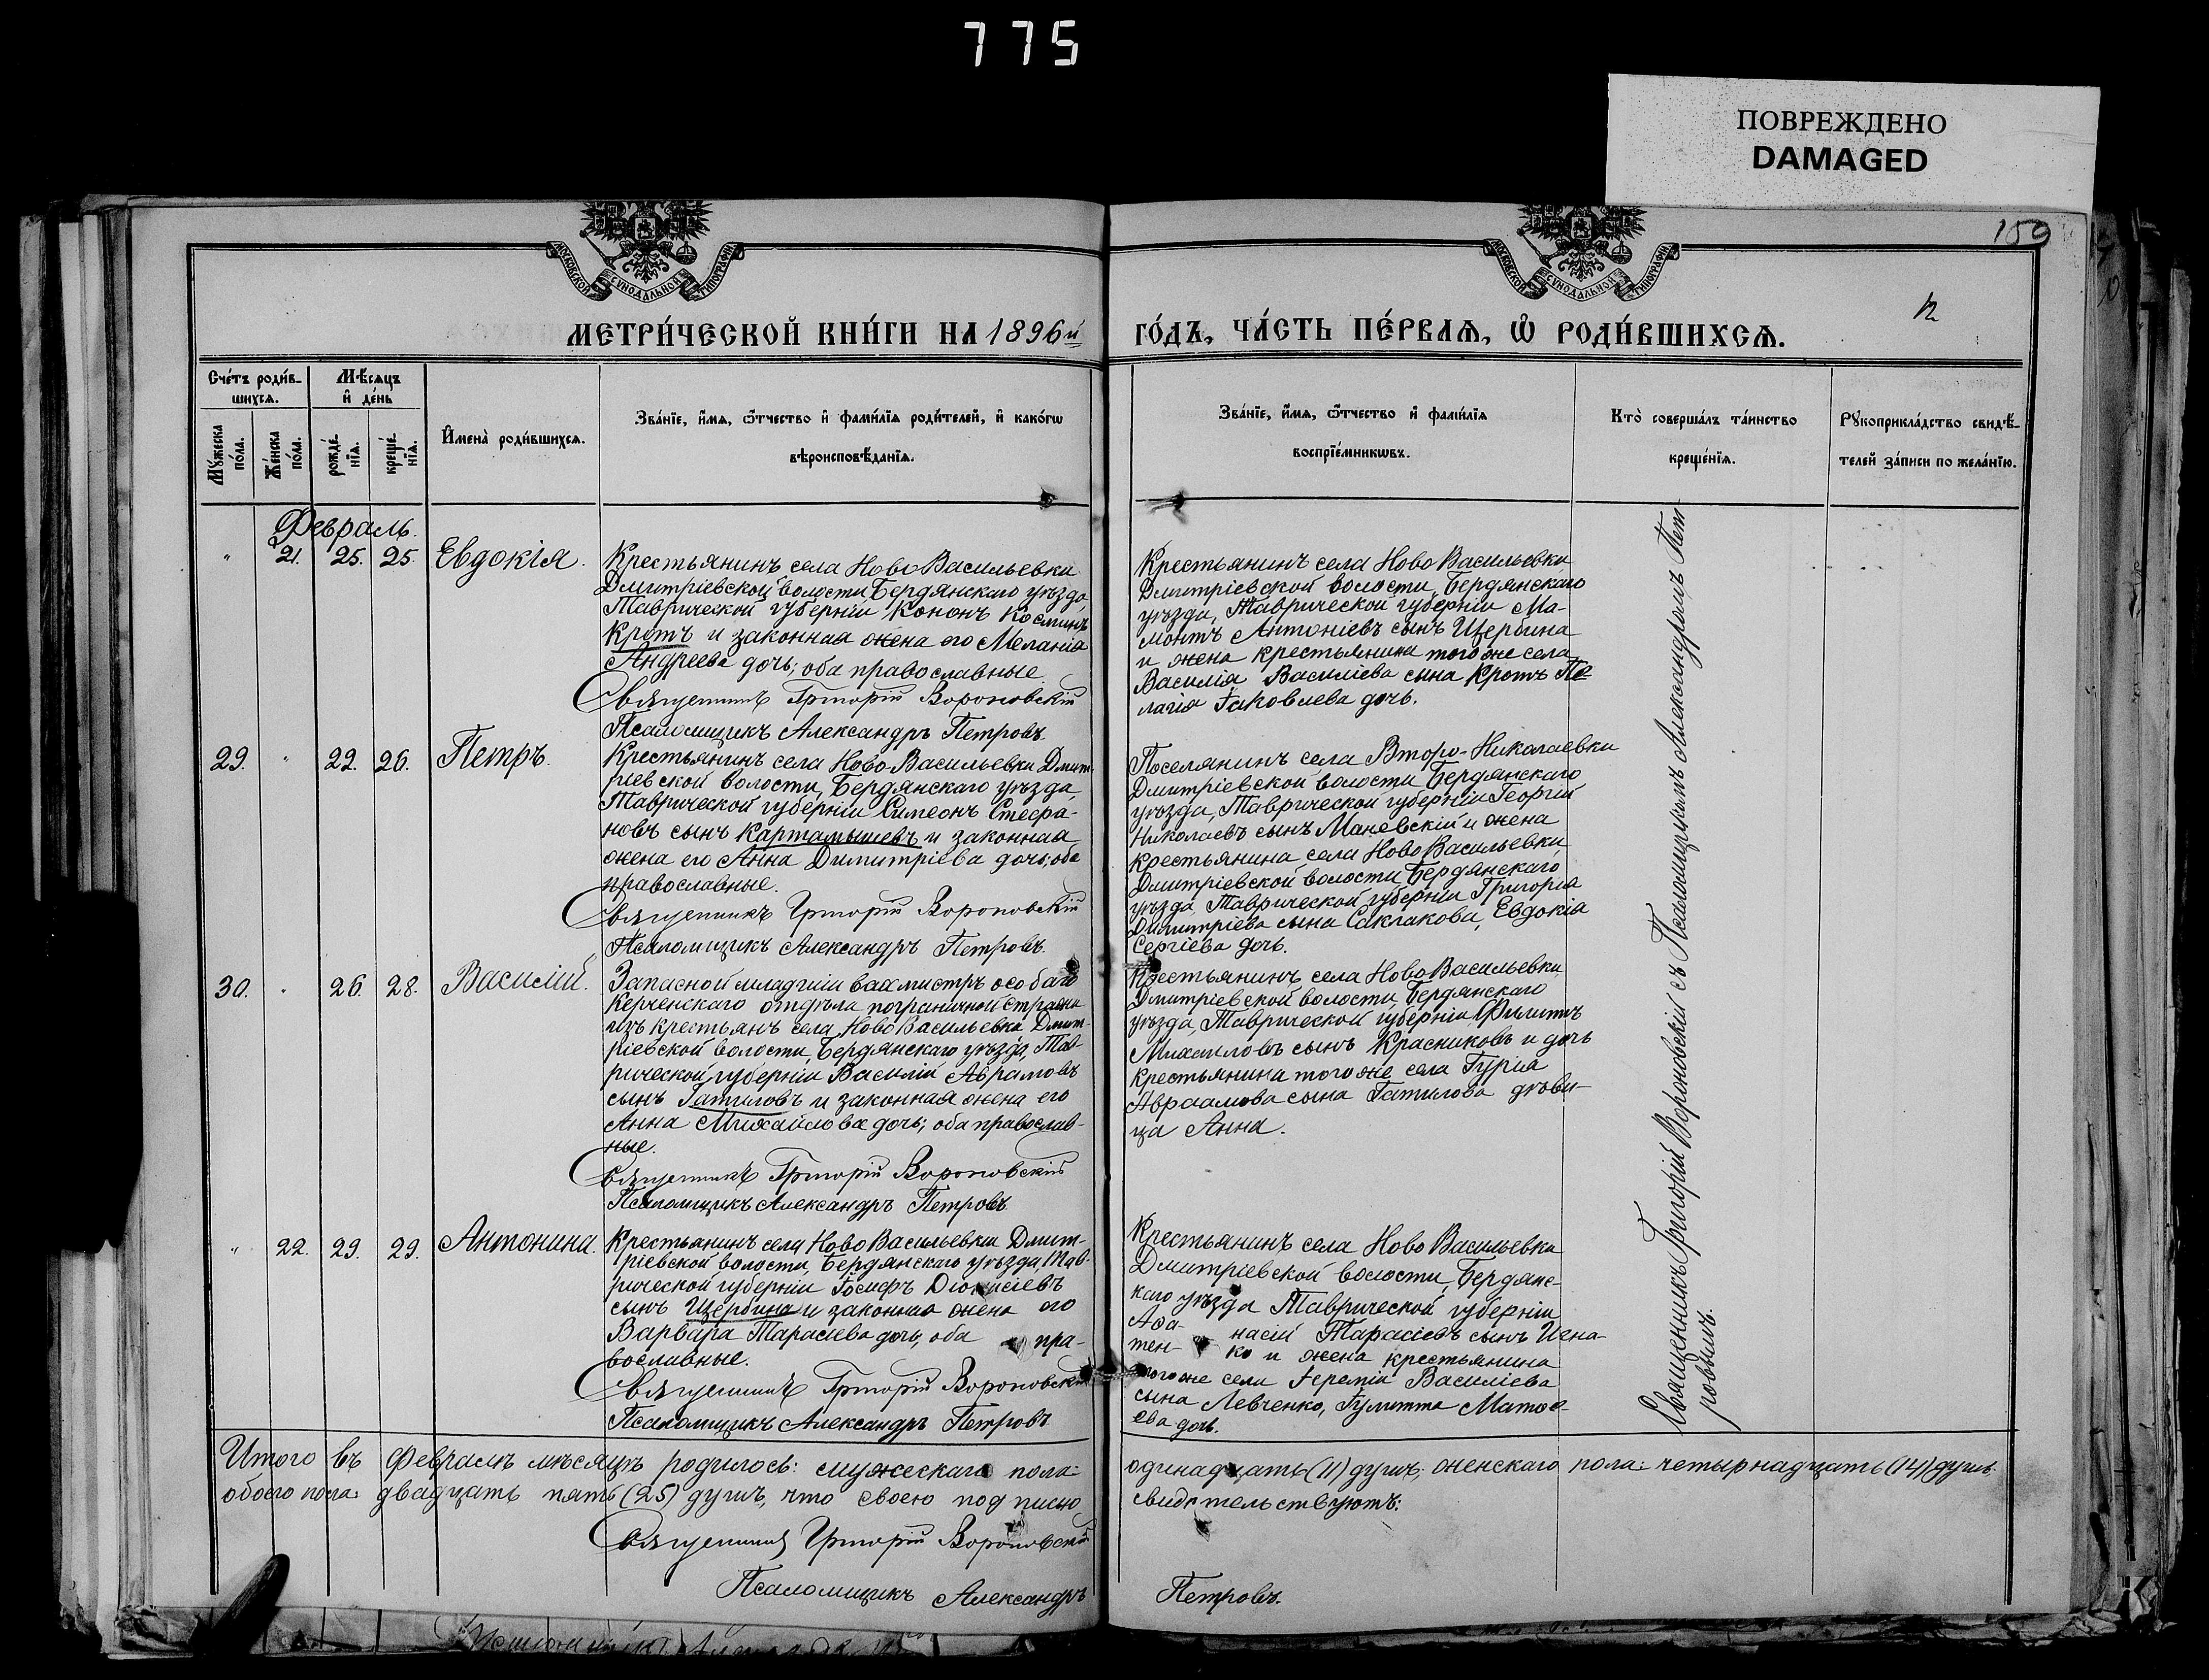 775
ПОВРЕЖДЕНО
DAMAGED
159
12
МОСКОВСКОЙ СѴНОДАЛЬНОЙ ТИПОГРАФІИ
МОСКОВСКОЙ СѴНОДАЛЬНОЙ ТИПОГРАФІИ
МЕТРИ́ЧЕСКОЙ КНИ́ГИ НА 1896й
ГО́ДЪ, ЧА́СТЬ ПЕ́РВАѦ, Ѡ РОДИ́ВШИХСѦ.
Сче́тъ роди́в-
шихсѧ.
Мѣ́сяцъ
и де́нь
Му́жеска
по́ла.
Же́нска
по́ла.
рожде́-
нїѧ.
креще́-
нїѧ.
Имена̀ роди́вшихсѧ.
Зва́нїе, и́мѧ, ѻ́тчество и фами́лїѧ роди́телей, и како́гѡ
вѣроисповѣ́данїѧ.
Зва́нїе, и́мѧ, ѻ́тчество и фами́лїѧ
воспрїе́мникѡвъ.
Кто̀ соверша́лъ та́инство
креще́нїѧ.
Рꙋкоприкла́дство свидѣ́-
телей за́писи по жела́нїю.
Февраль.
" 21. 25. 25. Евдокія.
Крестьянинъ села Ново Васильевки
Дмитріевской волости, Бердянскаго уѣзда,
Таврической губерніи Кононъ Косминъ
Кротъ и законная жена его Меланія
Андреева дочь; оба православные.
Священникъ Григорій Вороновскій
Псаломщикъ Александръ Петровъ.
Крестьянинъ села Ново Васильевки,
Дмитріевской волости, Бердянскаго
уѣзда, Таврической губерніи Ма-
монтъ Антоніевъ сынъ Щербина
и жена крестьянина того же села
Василія Василіева сына Кротъ Пе-
лагія Іаковлева дочь.
29. " 22. 26. Петръ.
Крестьянинъ села Ново Васильевки Дмит-
ріевской волости, Бердянскаго уѣзда,
Таврической губерніи Симеонъ Стефа-
новъ сынъ Картамышевъ и законная
жена его Анна Димитріева дочь; оба
православные.
Священникъ Григорій Вороновскій
Псаломщикъ Александръ Петровъ.
Поселянинъ села Второ-Николаевки
Дмитріевской волости Бердянскаго
уѣзда, Таврической губерніи Георгій
Николаевъ сынъ Маневскій и жена
крестьянина села Ново Васильевки,
Дмитріевской волости Бердянскаго
уѣзда, Таврической губерніи Григорія
Димитріева сына Саклакова, Евдокія
Сергіева дочь.
30. " 26. 28. Василій.
Запасной младшій вахмистръ особаго
Керченскаго отдѣла пограничной стражи
изъ крестьянъ села Ново Васильевки Дмит-
ріевской волости, Бердянскаго уѣзда, Тав-
рической губерніи Василій Аврамовъ
сынъ Гатиловъ и законная жена его
Анна Михайлова дочь; оба православ-
ные.
Священникъ Григорій Вороновскій
Псаломщикъ Александръ Петровъ
Крестьянинъ села Ново Васильевки,
Дмитріевской волости, Бердянскаго
уѣзда, Таврической губерніи Филиппъ
Михаиловъ сынъ Красниковъ и дочь
крестьянина того же села Гурія
Авраамова сына Гатилова дѣви-
ца Анна.
" 22. 29. 29. Антонина.
Крестьянинъ села Ново Васильевки Дмит-
ріевской волости, Бердянскаго уѣзда, Тав-
рической губерніи Іосифъ Діонисіевъ
сынъ Щербина и законная жена его
Варвара Тарасіева дочь, оба пра-
вославные.
Священникъ Григорій Вороновскій
Псаломщикъ Александръ Петровъ
Крестьянинъ села Ново Васильевки
Дмитріевской волости, Бердянс-
каго уѣзда Таврической губерніи
Аѳа- насій Тарасіевъ сынъ Игна-
тен- ко и жена крестьянина
того же села Іеремія Василіева
сына Левченко, Іулитта Матѳе-
ева дочь.
Священникъ Григорій Вороновскій съ Псаломщикомъ Александромъ Пет
ровымъ.
Итого въ Февралѣ мѣсяцѣ родилось: мужескаго пола: одинадцать (11) душъ; женскаго пола: четырнадцать (14) душъ.
обоего пола: двадцать пять (25) душъ, что своею подписью свидѣтельствуютъ:
Священникъ Григорій Вороновскій
Псаломщикъ Александръ Петровъ.